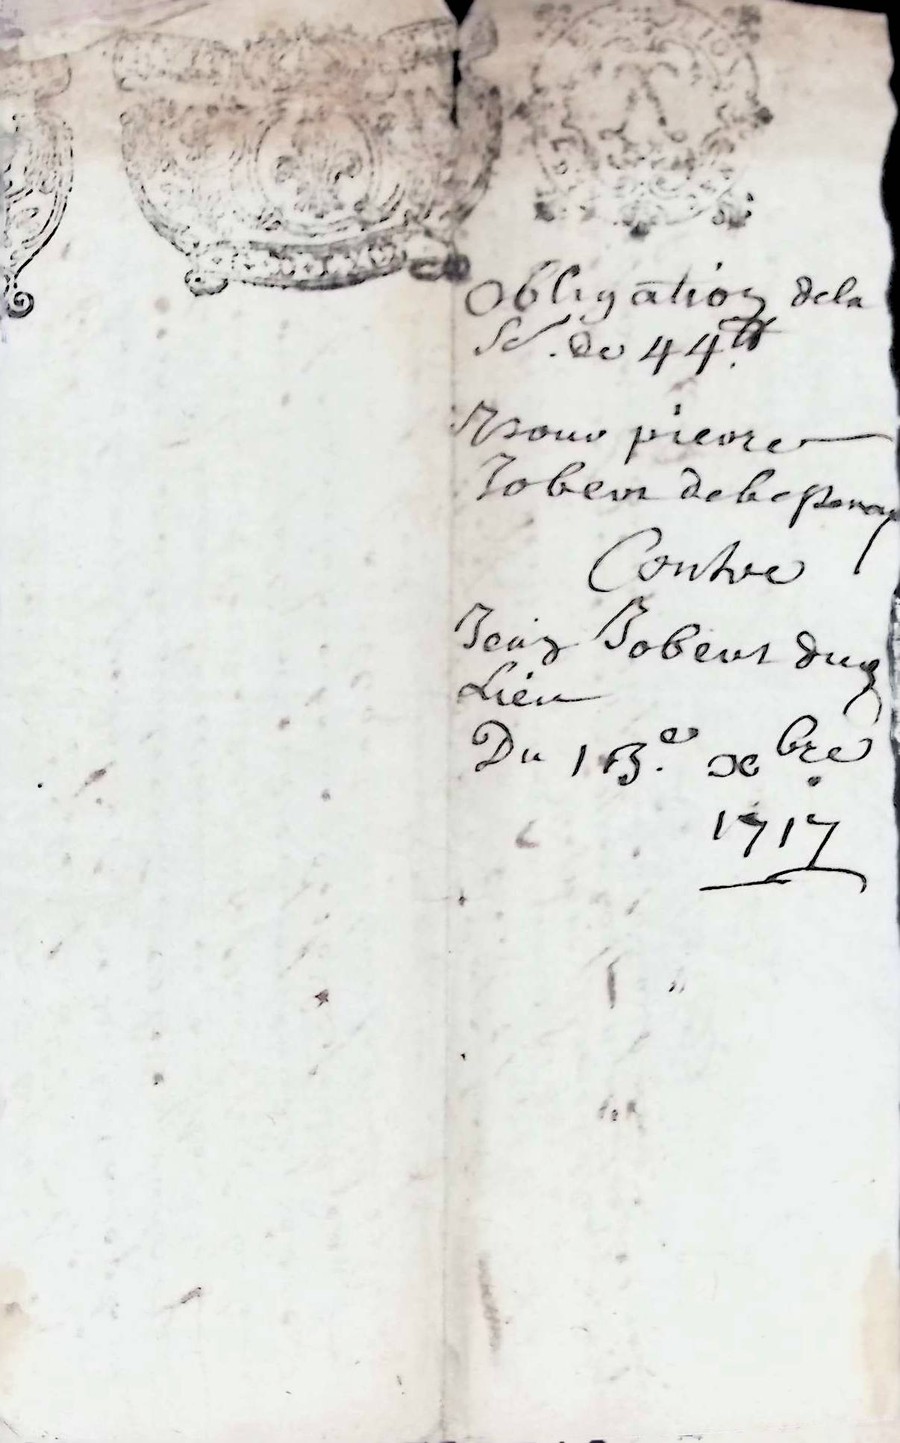 Obligation dela
Se. de 44 tt
pour pierre
Jobert de
Contre
Jean Jobert dud
Lieu
Du 1 xbre
1717